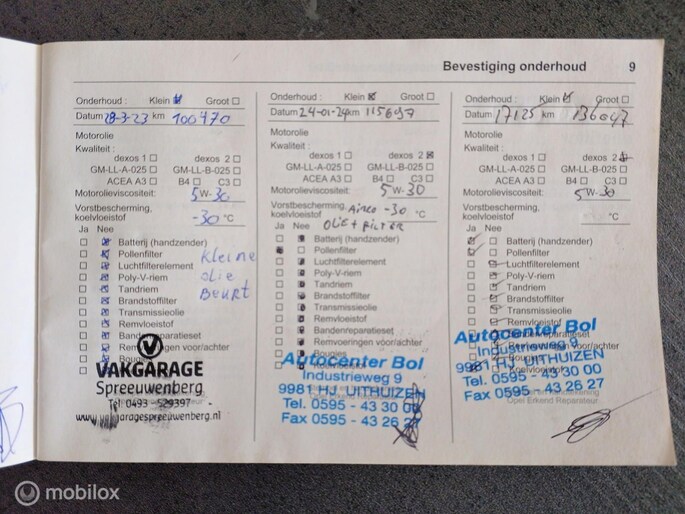 Bevestiging onderhoud 9
Onderhoud : Klein Groot
Datum 28-3-23 km 100470
Motorolie
Kwaliteit :
dexos 1 dexos 2
GM-LL-A-025 GM-LL-B-025
ACEA A3 B4 C3
Motorolieviscositeit: 5W-30
Vorstbescherming,
koelvloeistof -30 °C
Ja Nee
Batterij (handzender)
Pollenfilter
Luchtfilterelement
Poly-V-riem
Tandriem
Brandstoffilter
Transmissieolie
Remvloeistof
Bandenreparatieset
Remvoeringen voor/achter
Bougies
kleine
olie
Beurt
VAKGARAGE
Spreeuwenberg
Tel. 0493 - 529397
www.vakgaragespreeuwenberg.nl
Onderhoud : Klein Groot
Datum 24-01-24 km 115697
Motorolie
Kwaliteit :
dexos 1 dexos 2
GM-LL-A-025 GM-LL-B-025
ACEA A3 B4 C3
Motorolieviscositeit: 5W-30
Vorstbescherming, Airco -30
koelvloeistof °C
Ja Nee olie + FILTER
Batterij (handzender)
Pollenfilter
Luchtfilterelement
Poly-V-riem
Tandriem
Brandstoffilter
Transmissieolie
Remvloeistof
Bandenreparatieset
Remvoeringen voor/achter
Bougies
Autocenter Bol
Industrieweg 9
9981 HJ. UITHUIZEN
Tel. 0595 - 43 30 00
Fax 0595 - 43 26 27
Onderhoud : Klein Groot
Datum km
Motorolie
Kwaliteit :
dexos 1 dexos 2
GM-LL-A-025 GM-LL-B-025
ACEA A3 B4 C3
Motorolieviscositeit: 5W-30
Vorstbescherming,
koelvloeistof °C
Ja Nee
Batterij (handzender)
Pollenfilter
Luchtfilterelement
Poly-V-riem
Tandriem
Brandstoffilter
Transmissieolie
Remvloeistof
Autocenter Bol
Industrieweg 9
9981 HJ. UITHUIZEN
Tel. 0595 - 43 30 00
Fax 0595 - 43 26 27
Opel Erkend Reparateur
mobilox